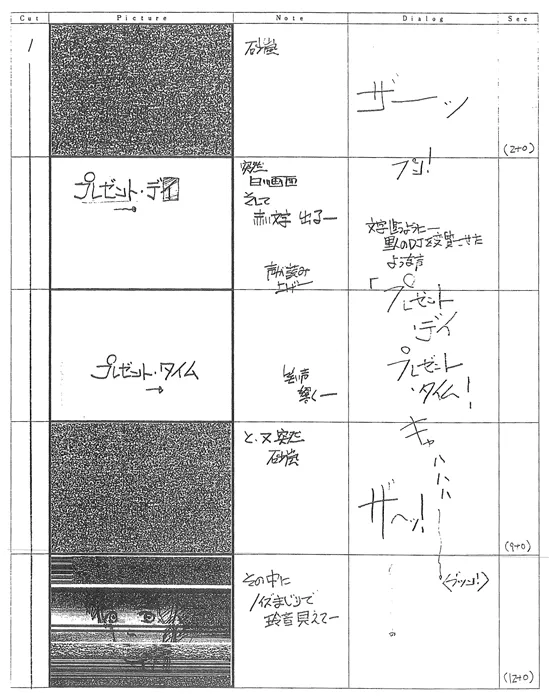 Cut Picture Note Dialog Sec
1
砂嵐
ザーッ
(2+0)
プレゼント・デイ
突然
白い画面
そして
赤い文字 出るー
声が読み
上げー
プツ!
黒人のDJを変質させた
ような声
「プレゼント
・デイ
プレゼント・タイム
笑い声
響くー
プレゼント
・タイム!
と、又突然
砂嵐
キャ
ハ
ハ
ハ
ザーッ!
(9+0)
その中に
ノイズまじりで
玲音見えてー
〈ブツン!〉
(12+0)